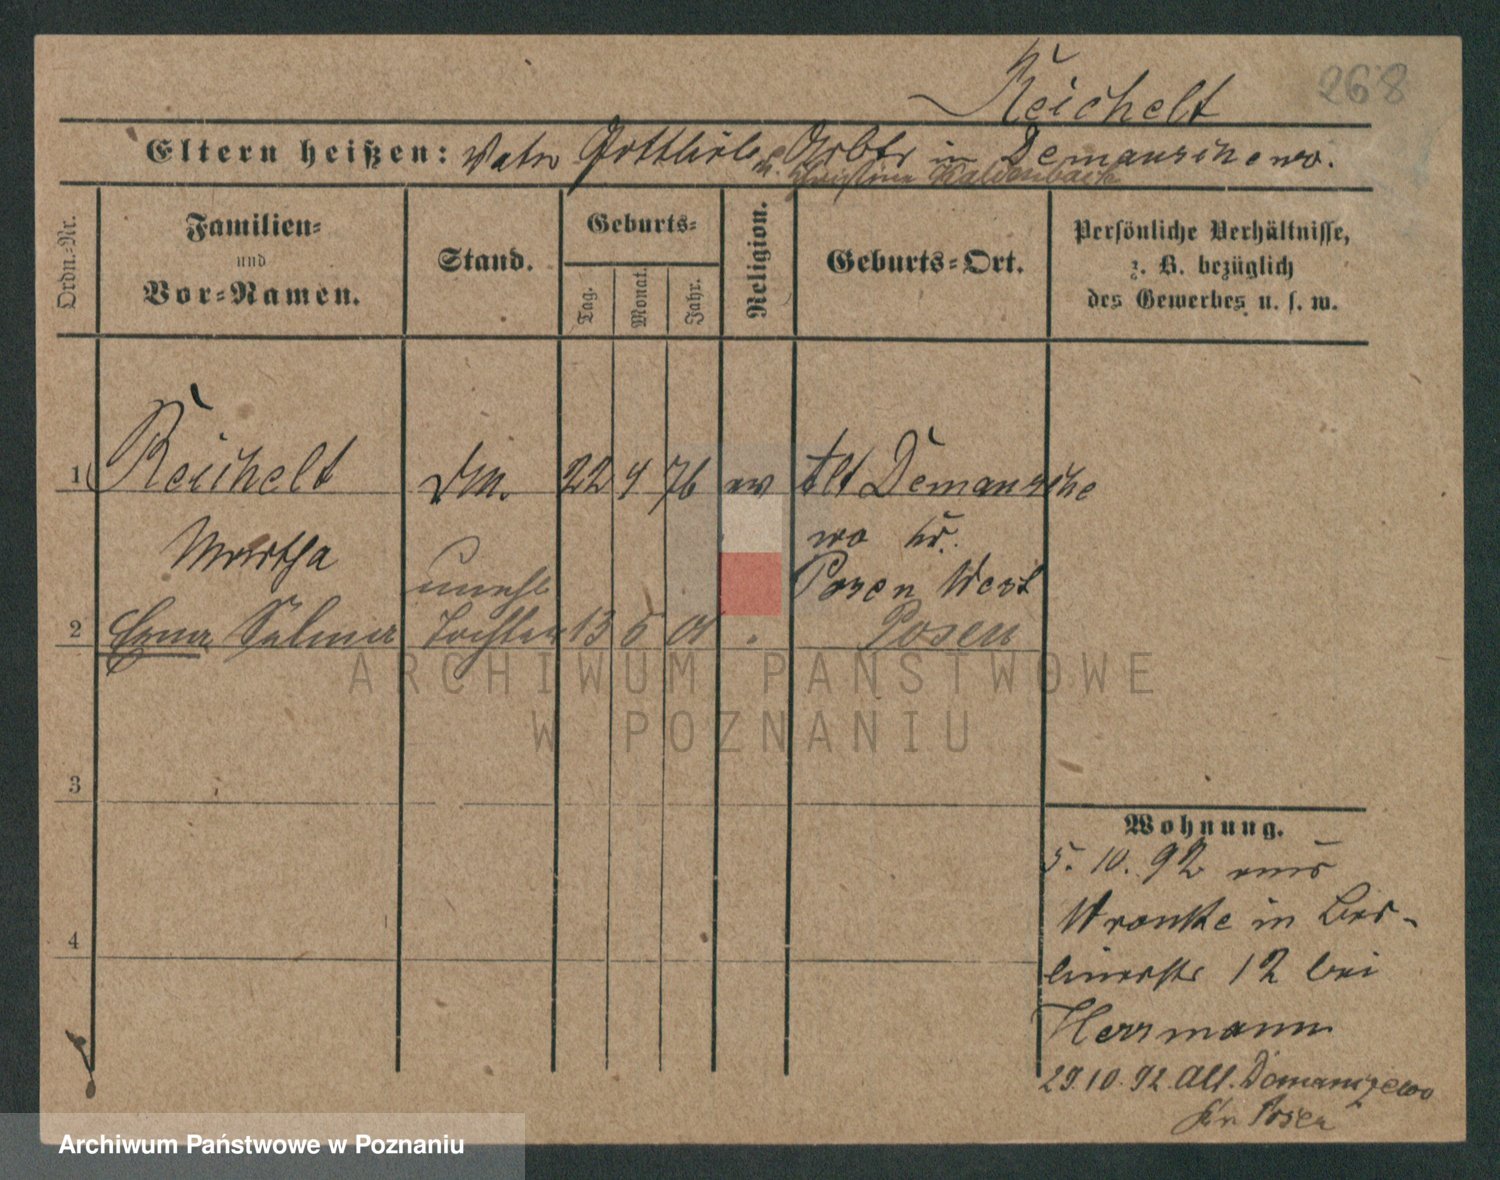 Reichelt 268
Eltern heißen: Vater Gottlieb, Arbtr in Demanschewo.
u. Christine Kaldenbach
Ordn.-Nr.
Familien-
und
Vor-Namen.
Stand.
Geburts-
Tag.
Monat.
Jahr.
Religion.
Geburts-Ort.
Persönliche Verhältnisse,
z. B. bezüglich
des Gewerbes u. s. w.
1 Reichelt 22 4 76 ev Alt Demansche
Martha wo Kr.
unehl Posen West
2 Erna Selma Tochter 13 5 01 Posen
3
4
Wohnung.
5. 10. 92 aus
Wronke in Ber-
linerstr 12 bei
Herrmann
29.10.92 Alt. Demanzewo
Kr. Posen
ARCHIWUM PAŃSTWOWE
W POZNANIU
Archiwum Państwowe w Poznaniu